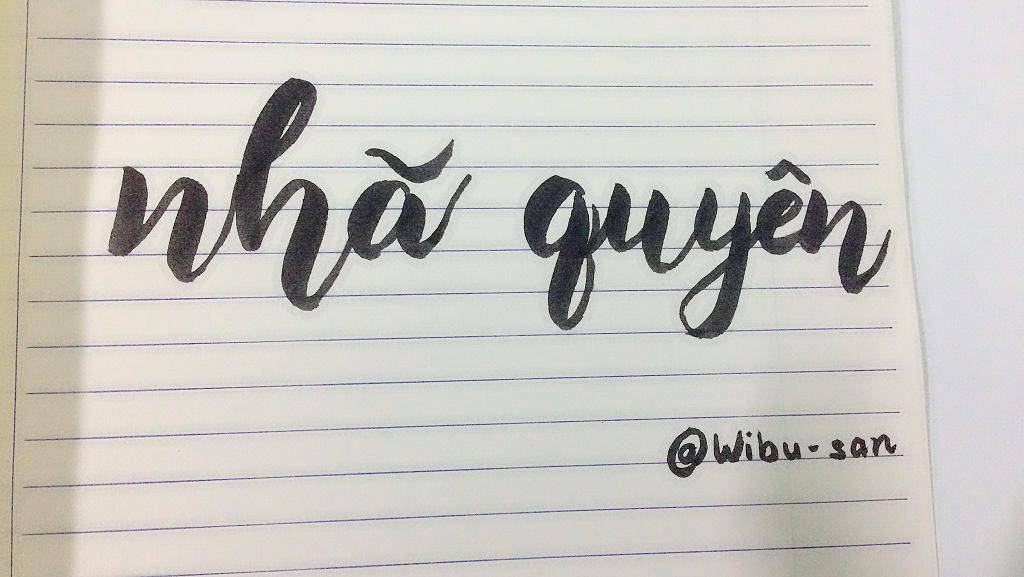 nhã quyên
@Wibu-san